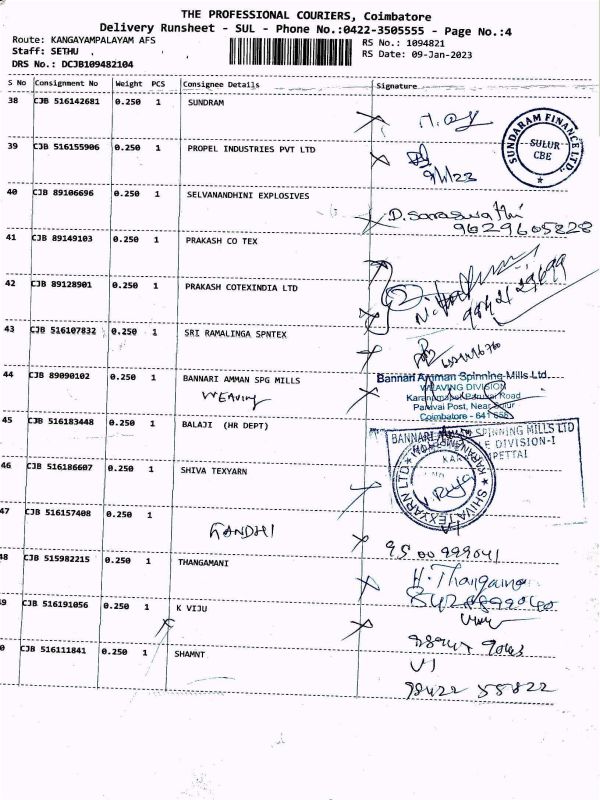 THE PROFESSIONAL COURIERS, Coimbatore
Delivery Runsheet - SUL - Phone No.:0422-3505555 - Page No.:4
Route: KANGAYAMPALAYAM AFS RS No.: 1094821
Staff: SETHU RS Date: 09-Jan-2023
DRS No.: DCJB109482104
S No Consignment No Weight PCS Consignee Details Signature
38 CJB 516142681 0.250 1 SUNDRAM
SUNDARAM FINANCE LTD.,
SULUR
CBE
39 CJB 516155906 0.250 1 PROPEL INDUSTRIES PVT LTD
9/1/23
40 CJB 89106696 0.250 1 SELVANANDHINI EXPLOSIVES
D. Saraswathi
9629605828
41 CJB 89149103 0.250 1 PRAKASH CO TEX
42 CJB 89128901 0.250 1 PRAKASH COTEXINDIA LTD
43 CJB 516107832 0.250 1 SRI RAMALINGA SPNTEX
44 CJB 89090102 0.250 1 BANNARI AMMAN SPG MILLS
Weaving
Bannari Amman Spinning Mills Ltd.
WEAVING DIVISION
Karanampet-Paruvai Road
Paruvai Post, Near Sulur
Coimbatore - 641 658
45 CJB 516183448 0.250 1 BALAJI (HR DEPT)
BANNARI SPINNING MILLS LTD
DIVISION-I
46 CJB 516186607 0.250 1 SHIVA TEXYARN
SHIVA TEXYARN LTD
47 CJB 516157408 0.250 1
GANDHI
95 00 999041
48 CJB 515982215 0.250 1 THANGAMANI
H. Thangamani
49 CJB 516191056 0.250 1 K VIJU
0 CJB 516111841 0.250 1 SHAMNT
98422 55822